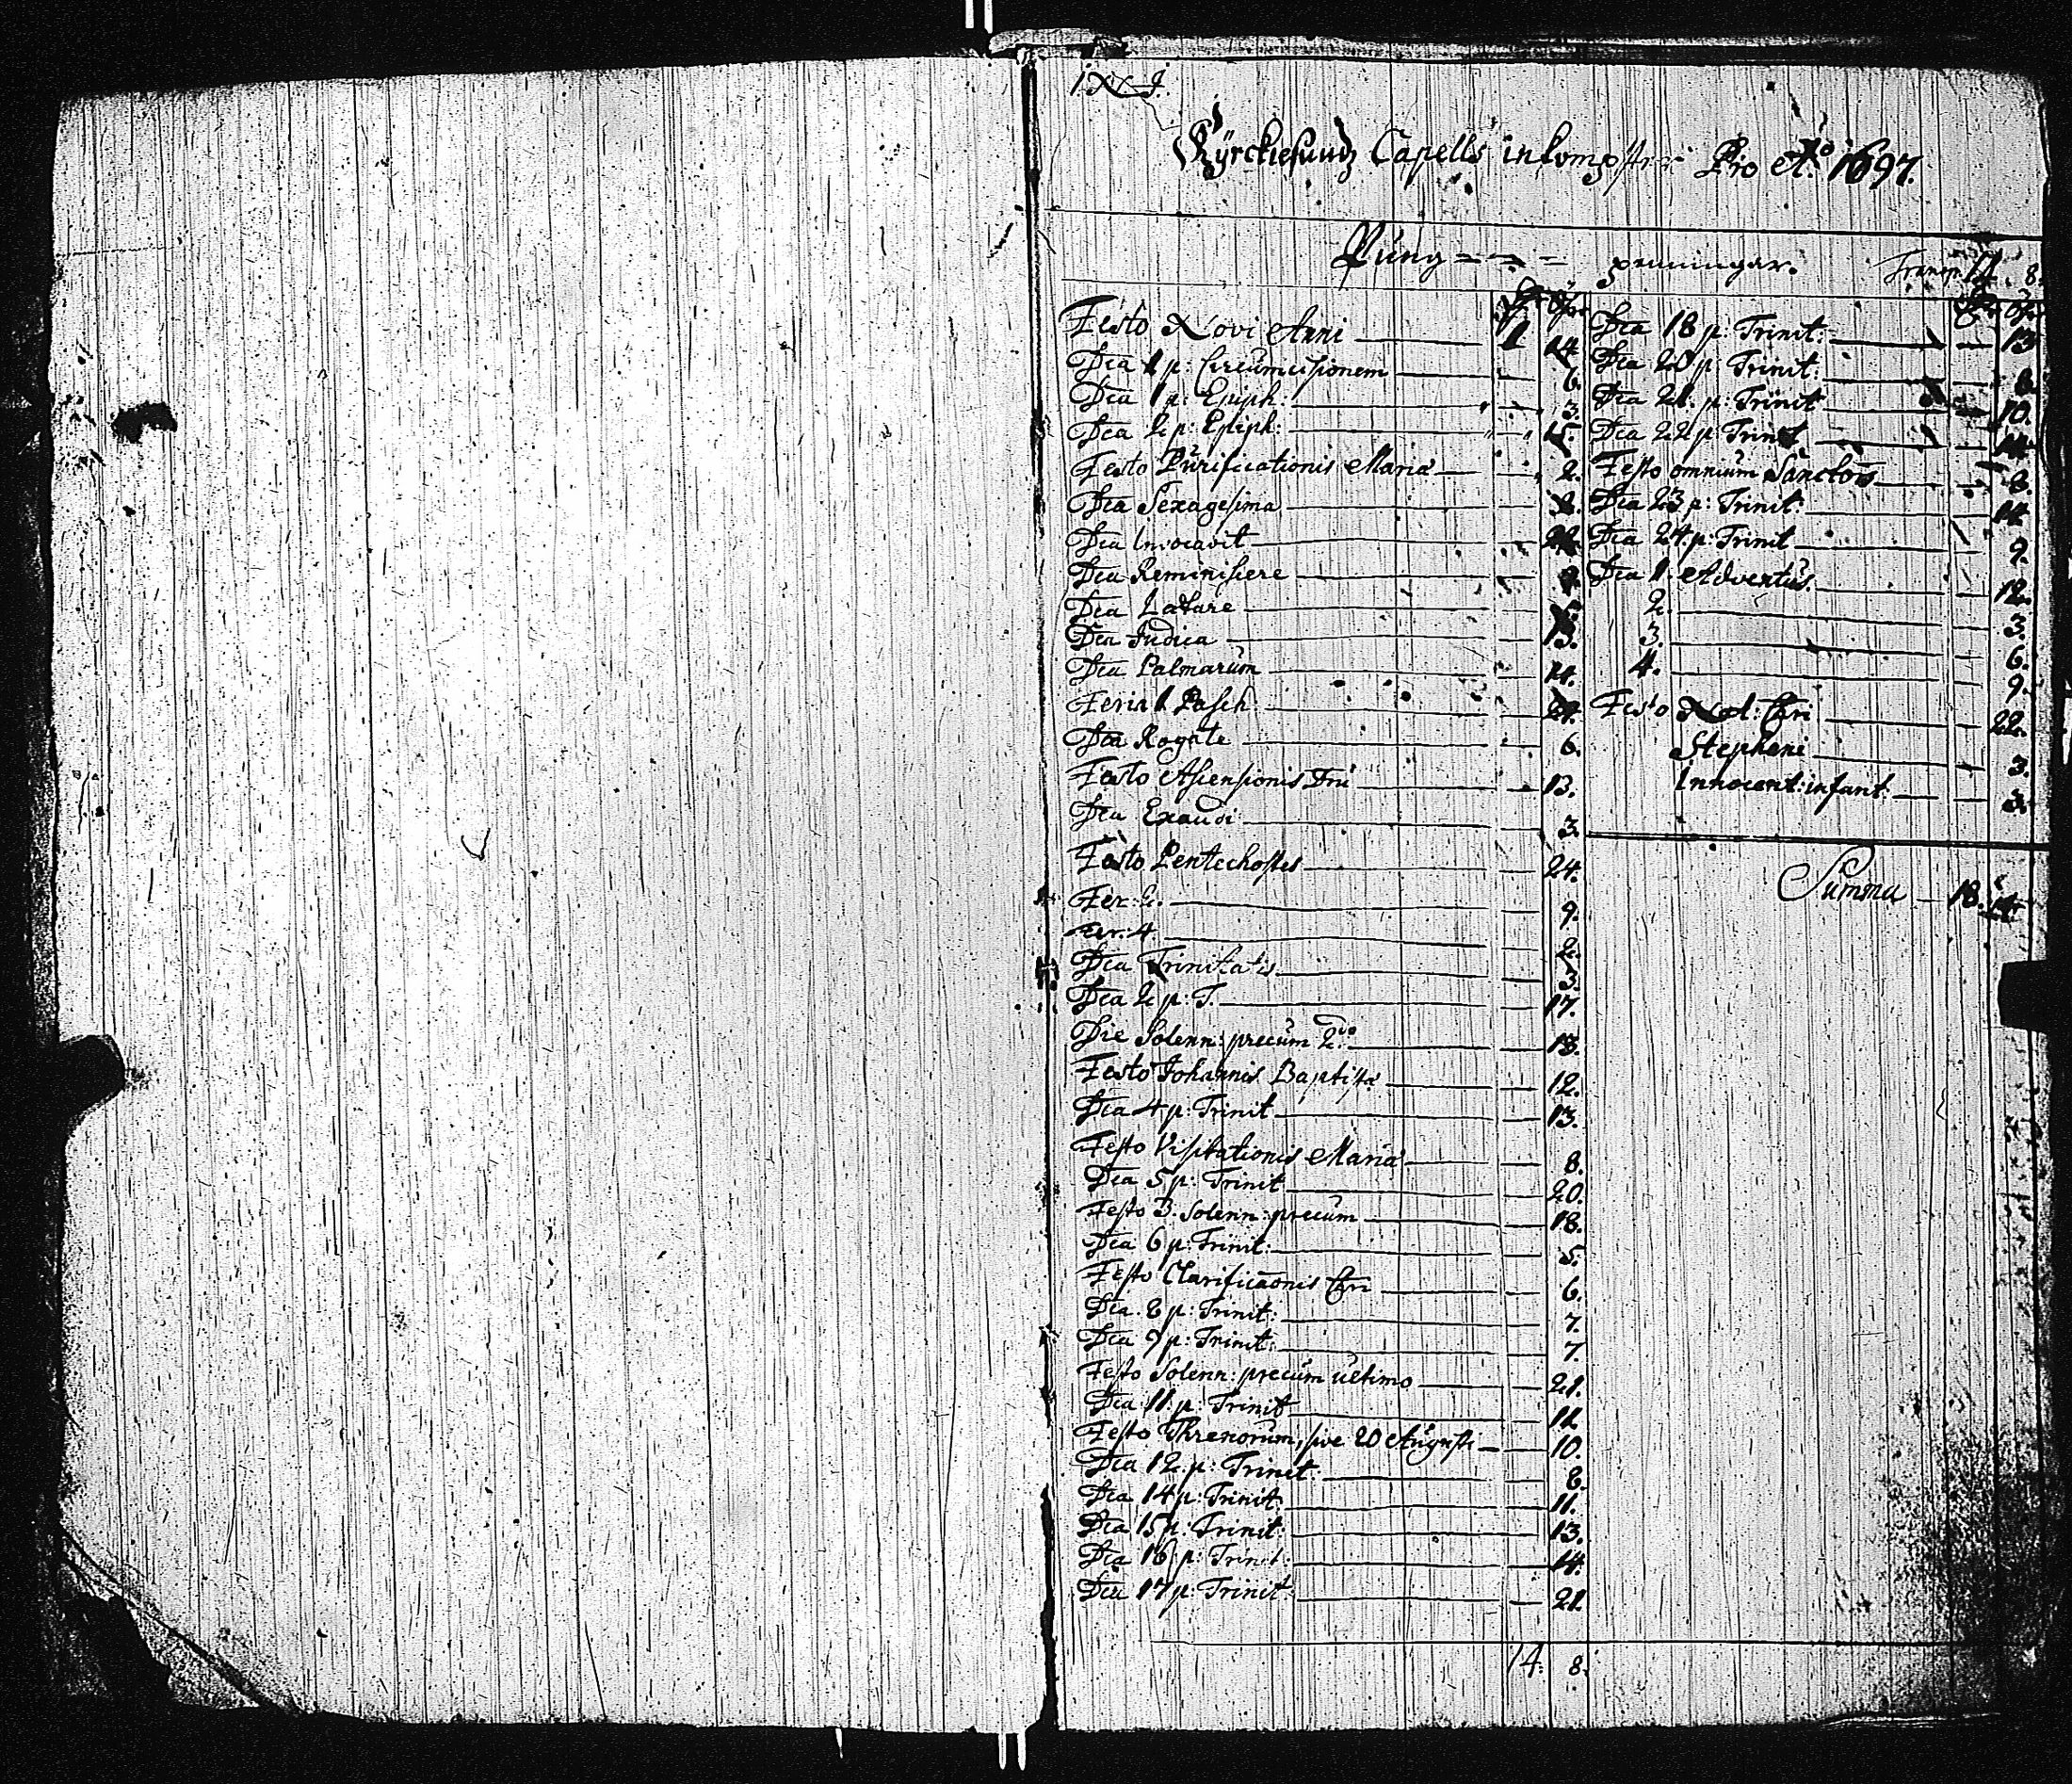 Kyrckiesundz Capells inkompster Pro Ao 1697.
Pung - - - penningar. Transp. 14. 8.
Festo Novi Anni 1 14.
Dca 1 p: Circumcisionem 6.
Dca 1 p: Epiph: 3.
Dca 2 p: Epiph: 15.
Festo Purificationis Mariæ 2.
Dca Sexagesima
Dca Invocavit
Dca Reminiscere
Dca Lætare
Dca Judica 13.
Dca Palmarum 11.
Feria 1 Pasch
Dca Rogate 6.
Festo Ascensionis Dni 13.
Dca Exaudi 3.
Festo Pentechostes 24.
Fer: 2. 9.
Fer. 4 2.
Dca Trinitatis 3.
Dca 2 p: T. 17.
Die Solenn: precum 2do 18.
Festo Johannis Baptistæ 12.
Dca 4 p: Trinit 13.
Festo Visitationis Mariæ 8.
Dca 5 p: Trinit 20.
Festo 3. Solenn: precum 18.
Dca 6 p: Trinit: 5.
Festo Clarificaonis Chri 6.
Dca 8 p: Trinit: 7.
Dca 9 p: Trinit: 7.
Festo Solenn: precum ultimo 21.
Dca 11. p: Trinit 11
Festo Threnorum, sive 20 Augusti 10.
Dca 12 p: Trinit: 8.
Dca 14 p: Trinit: 11.
Dca 15 p: Trinit: 13.
Dca 16 p: Trinit: 14.
Dca 17 p: Trinit 21.
14. 8.
Dca 18 p: Trinit: 13
Dca 20 p: Trinit: 8.
Dca 21. p: Trinit 10.
Dca 22 p: Trinit 14.
Festo omnium Sanctor 8.
Dca 23 p: Trinit: 14.
Dca 24 p: Trinit 9.
Dca 1. Adventus. 12.
2. 3.
3. 6.
4. 9.
Festo Nat: Chri 22.
Stephani 3.
Innocent: infant: 3.
Summa 18. 14